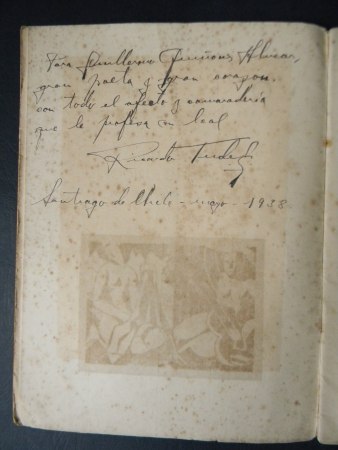 Para Guillermo Quiñonez Alvear,
gran poeta y gran corazon,
con todo el afecto y camaradería
que le profesa su leal
Ricardo Tudela
Santiago de Chile - mayo - 1938